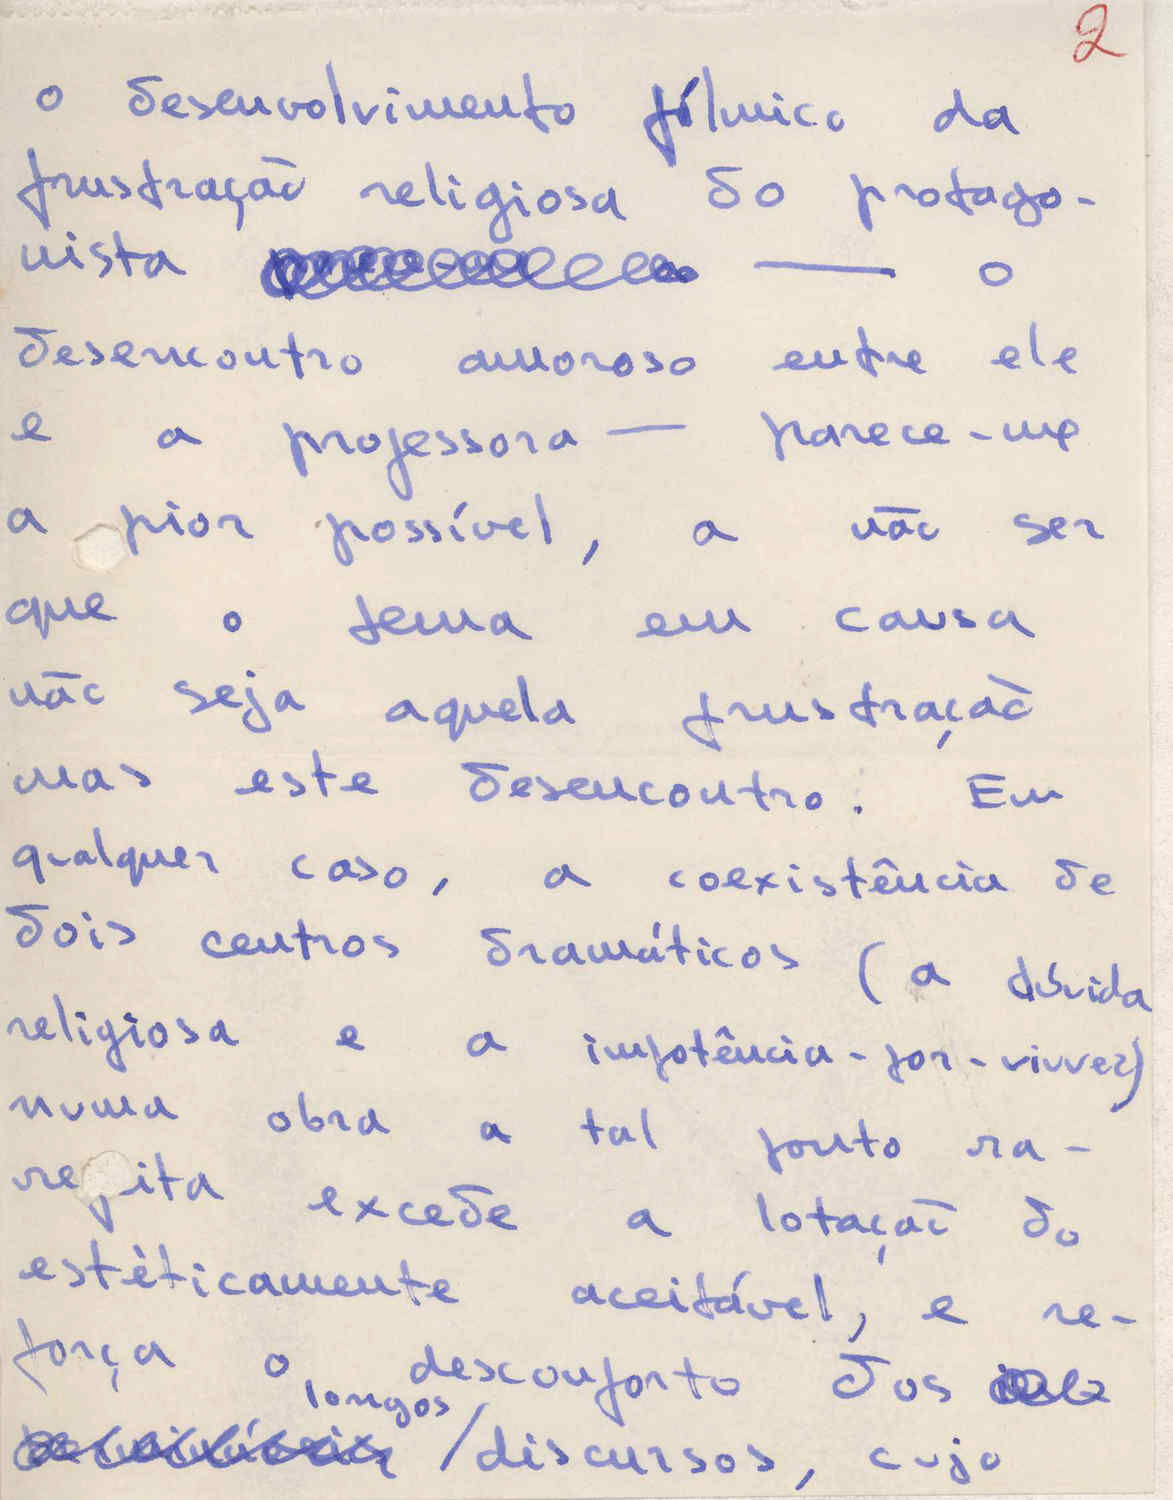 2
o desenvolvimento fílmico da
frustração religiosa do protago-
nista — o
desencontro amoroso entre ele
e a professora — parece-me
a pior possível, a não ser
que o tema em causa
não seja aquela frustração
mas este desencontro. Em
qualquer caso, a coexistência de
dois centros dramáticos (a dúvida
religiosa e a impotência-por-viver)
numa obra a tal ponto ra-
refeita excede a lotação do
estèticamente aceitável, e re-
força o desconforto dos
longos
discursos, cujo